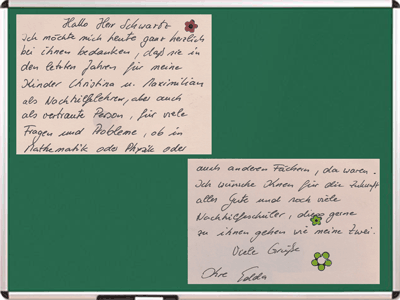 Hallo Herr Schwartz
ich möchte mich heute ganz herzlich
bei ihnen bedanken, daß sie in
den letzten Jahren für meine
Kinder Christina u. Maximilian
als Nachhilfelehrer, aber auch
als vertraute Person, für viele
Fragen und Probleme, ob in
Mathematik oder Physik oder
auch anderen Fächern, da waren.
Ich wünsche Ihnen für die Zukunft
alles Gute und noch viele
Nachhilfeschüler, die gerne
zu ihnen gehen wie meine Zwei.
Viele Grüße
Ihre